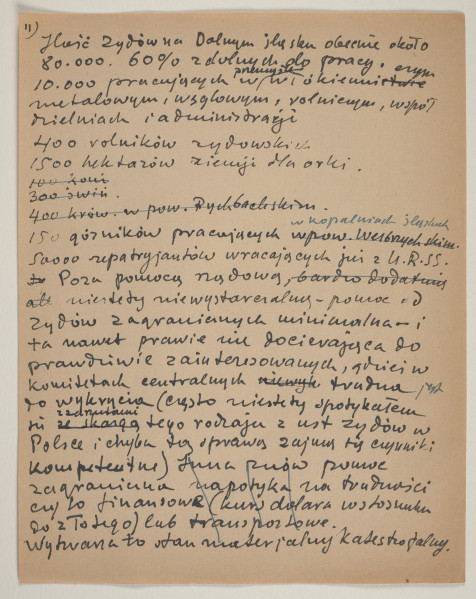 11)
Ilość Żydów na Dolnym Śląsku obecnie około
80.000. 60% zdolnych do pracy.
10.000 pracujących w przemyśle włókienniczym
metalowym, węglowym, rolniczym, współ
dzielniach i administracji
400 rolników żydowskich
1500 hektarów ziemji dla orki.
100 koni
300 świń.
400 krów. w pow. Rychbachskim.
w kopalniach śląskich
150 górników pracujących w pow. Wałbrzyskim.
50000 repatryjantów wracających już z U.R.S.S.
Poza pomocą rządową, bardzo dodatnią
ale niestety niewystarczalną - pomoc od
Żydów zagranicznych minimalna - i
ta nawet prawie nie docierająca do
prawdziwie zainteresowanych, gdzieś w
komitetach centralnych trudna jest
do wykrycia (często niestety spotykałem
się z zarzutami tego rodzaju z ust Żydów w
Polsce i chyba tą sprawą zajmą się czynniki
kompetentne) Inna znów pomoc
zagraniczna napotyka na trudności
czysto finansowe (kurs dolara w stosunku
do złotego) lub transportowe.
Wytwarza to stan materjalny katastrofalny.